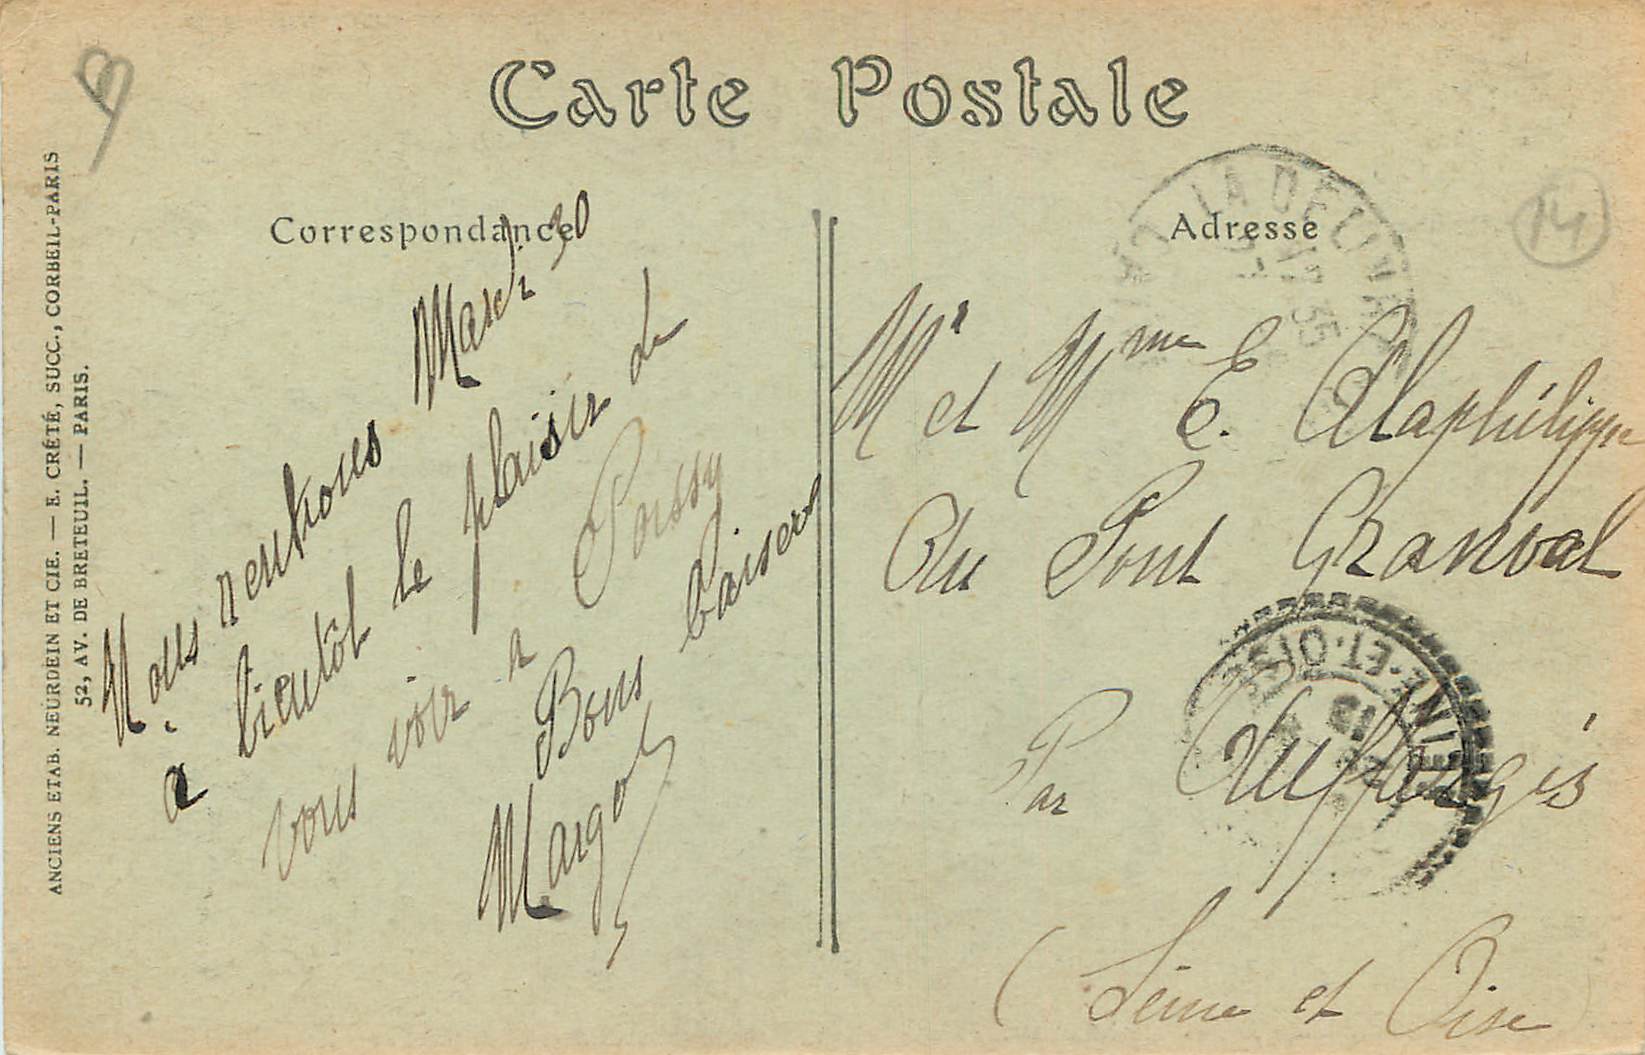 Carte Postale
Correspondance
Adresse
ANCIENS ETAB. NEURDEIN ET CIE. — E. CRÉTÉ, SUCC., CORBEIL-PARIS
52, AV. DE BRETEUIL. — PARIS.
14
Mardi 30
Nous rentrons
à bientôt le plaisir de
vous voir à Poissy
Bons baisers
Margot
Mr et Mme E. Alaphilippe
Au Pont Granval
Par Auffargis
(Seine et Oise)
LA DEUVILLE
35
SEINE-ET-OISE